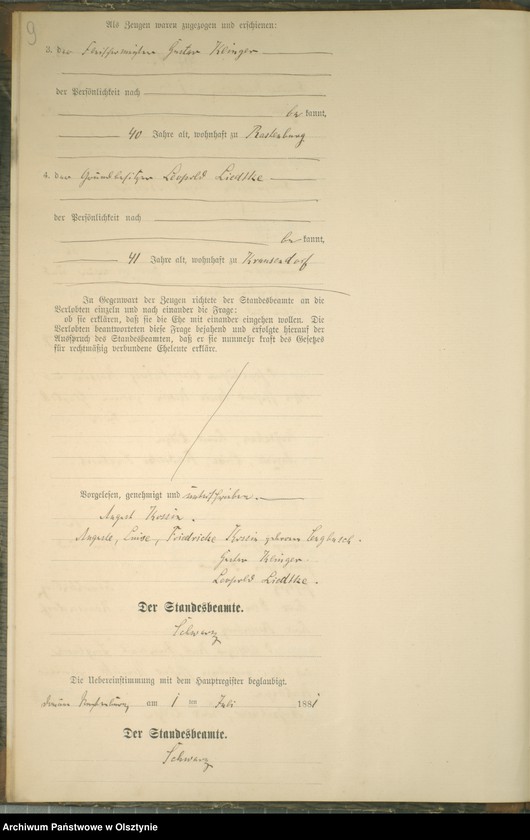 9
Als Zeugen waren zugezogen und erschienen:
3. der Fleischermeister Gustav Klinger
der Persönlichkeit nach
be kannt,
40 Jahre alt, wohnhaft zu Rastenburg
4. der Grundbesitzer Leopold Liedtke
der Persönlichkeit nach
be kannt,
41 Jahre alt, wohnhaft zu Krausendorf
In Gegenwart der Zeugen richtete der Standesbeamte an die
Verlobten einzeln und nach einander die Frage:
ob sie erklären, daß sie die Ehe mit einander eingehen wollen. Die
Verlobten beantworteten diese Frage bejahend und erfolgte hierauf der
Ausspruch des Standesbeamten, daß er sie nunmehr kraft des Gesetzes
für rechtmäßig verbundene Eheleute erkläre.
Vorgelesen, genehmigt und unterschrieben.
August Kossin.
Auguste, Luise, Friedricke Kossin geborene
Gustav Klinger
Leopold Liedtke.
Der Standesbeamte.
Schwarz
Die Uebereinstimmung mit dem Hauptregister beglaubigt.
am 1 ten Juli 1881
Der Standesbeamte.
Schwarz
Archiwum Państwowe w Olsztynie